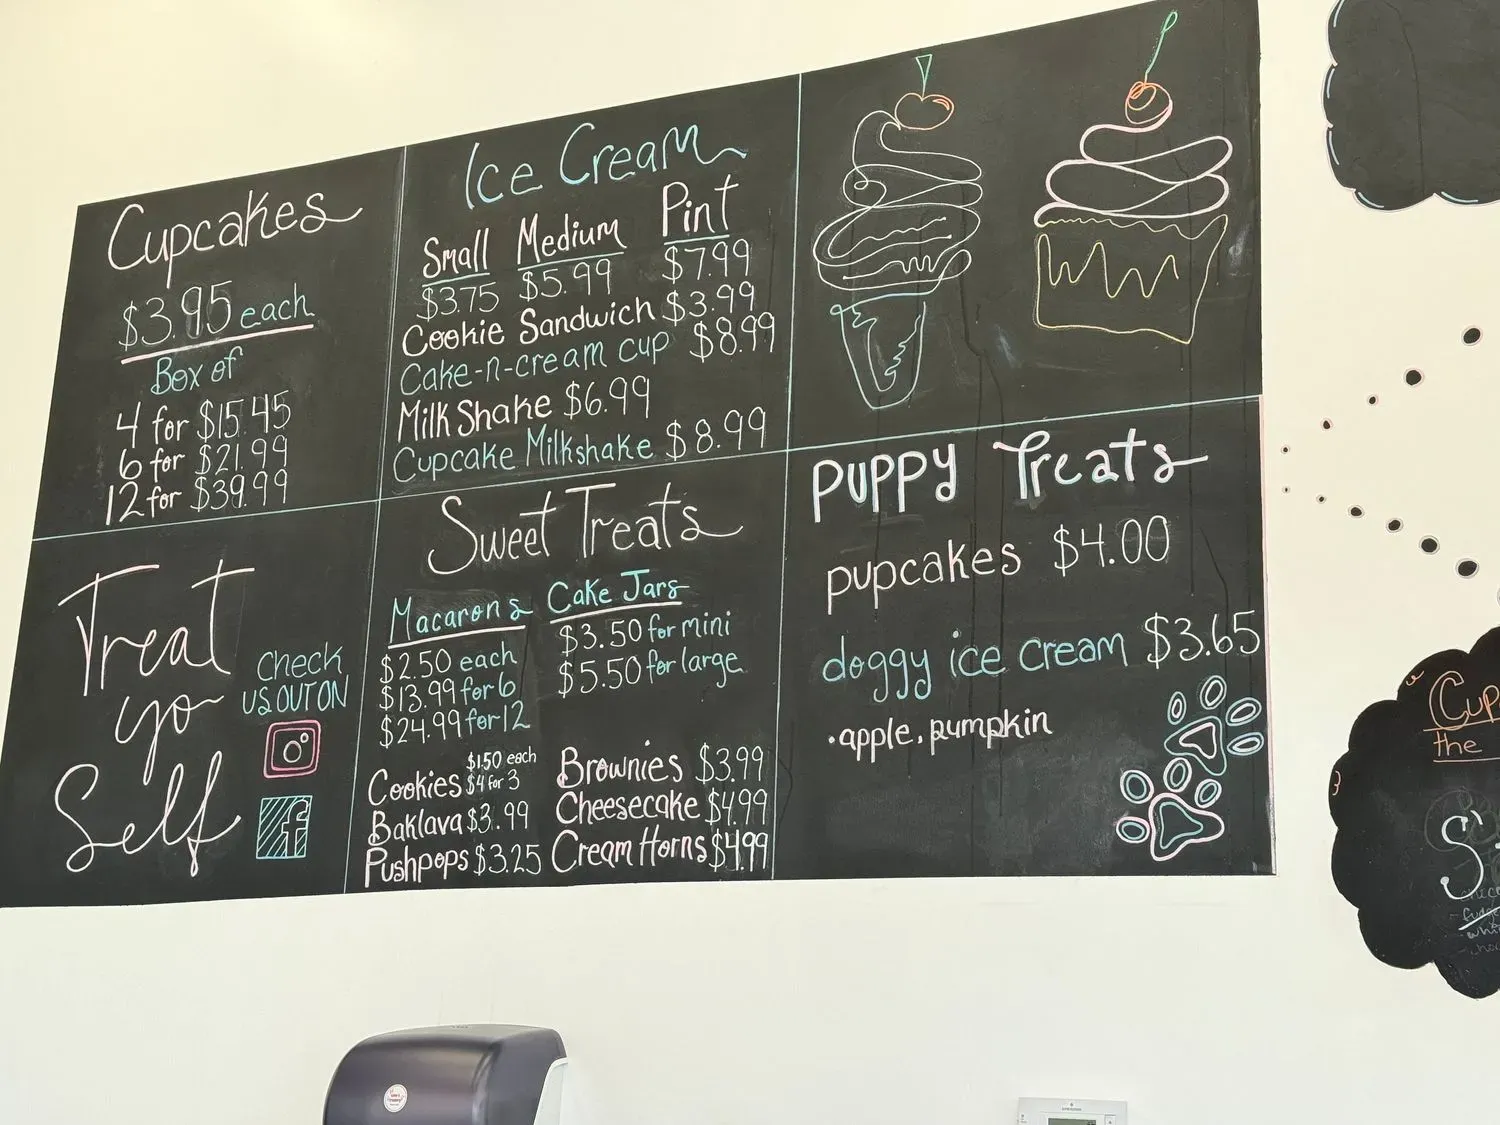 Cupcakes
$3.95 each
Box of
4 for $15.45
6 for $21.99
12 for $39.99
Ice Cream
Small Medium Pint
$3.75 $5.99 $7.99
Cookie Sandwich $3.99
Cake-n-cream cup $8.99
Milk Shake $6.99
Cupcake Milkshake $8.99
Treat
yo
Self
Check
us out on
f
Sweet Treats
Macarons
$2.50 each
$13.99 for 6
$24.99 for 12
Cake Jars
$3.50 for mini
$5.50 for large
Cookies $1.50 each
$4 for 3
Baklava $3.99
Pushpops $3.25
Brownies $3.99
Cheesecake $4.99
Cream Horns $4.99
puppy Treats
pupcakes $4.00
doggy ice cream $3.65
•apple, pumpkin
Cup
the